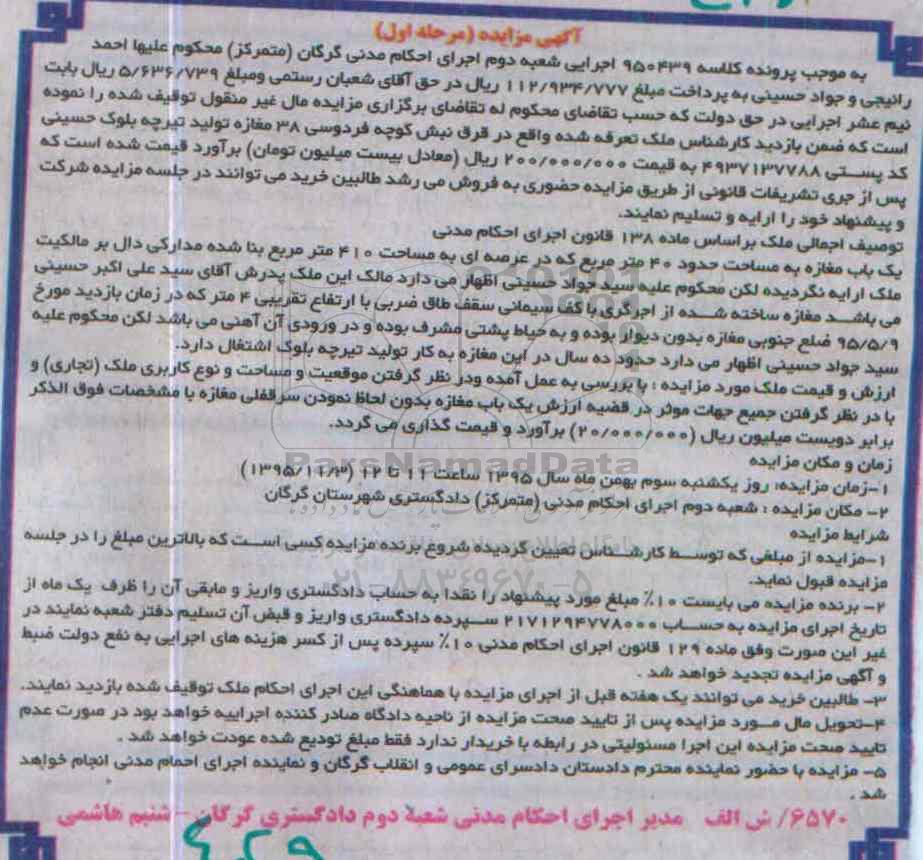 آگهی مزایده (مرحله اول)
به موجب پرونده کلاسه ۹۵۰۴۳۹ اجرایی شعبه دوم اجرای احکام مدنی گرگان (متمرکز) محکوم علیها احمد
رانیجی و جواد حسینی به پرداخت مبلغ ۱۱۲/۹۳۴/۷۷۷ ریال در حق آقای شعبان رستمی ومبلغ ۵/۶۳۶/۷۳۹ ریال بابت
نیم عشر اجرایی در حق دولت که حسب تقاضای محکوم له تقاضای برگزاری مزایده مال غیر منقول توقیف شده را نموده
است که ضمن بازدید کارشناس ملک تعرفه شده واقع در قرق نبش کوچه فردوسی ۳۸ مغازه تولید تیرچه بلوک حسینی
کد پستی ۴۹۳۷۱۳۷۷۸۸ به قیمت ۲۰۰/۰۰۰/۰۰۰ ریال (معادل بیست میلیون تومان) برآورد قیمت شده است که
پس از جری تشریفات قانونی از طریق مزایده حضوری به فروش می رشد طالبین خرید می توانند در جلسه مزایده شرکت
و پیشنهاد خود را ارایه و تسلیم نمایند.
توصیف اجمالی ملک براساس ماده ۱۳۸ قانون اجرای احکام مدنی
یک باب مغازه به مساحت حدود ۴۰ متر مربع که در عرصه ای به مساحت ۴۱۰ متر مربع بنا شده مدارکی دال بر مالکیت
ملک ارایه نگردیده لکن محکوم علیه سید جواد حسینی اظهار می دارد مالک این ملک پدرش آقای سید علی اکبر حسینی
می باشد مغازه ساخته شده از اجرگری با کف سیمانی سقف طاق ضربی با ارتفاع تقریبی ۴ متر که در زمان بازدید مورخ
۹۵/۵/۹ ضلع جنوبی مغازه بدون دیوار بوده و به حیاط پشتی مشرف بوده و در ورودی آن آهنی می باشد لکن محکوم علیه
سید جواد حسینی اظهار می دارد حدود ده سال در این مغازه به کار تولید تیرچه بلوک اشتغال دارد.
ارزش و قیمت ملک مورد مزایده : با بررسی به عمل آمده ودر نظر گرفتن موقعیت و مساحت و نوع کاربری ملک (تجاری) و
با در نظر گرفتن جمیع جهات موثر در قضیه ارزش یک باب مغازه بدون لحاظ نمودن سرقفلی مغازه با مشخصات فوق الذکر
برابر دویست میلیون ریال (۲۰/۰۰۰/۰۰۰) برآورد و قیمت گذاری می گردد.
زمان و مکان مزایده
۱-زمان مزایده: روز یکشنبه سوم بهمن ماه سال ۱۳۹۵ ساعت ۱۱ تا ۱۲ (۱۳۹۵/۱۱/۳)
۲- مکان مزایده : شعبه دوم اجرای احکام مدنی (متمرکز) دادگستری شهرستان گرگان
شرایط مزایده
۱-مزایده از مبلغی که توسط کارشناس تعیین گردیده شروع برنده مزایده کسی است که بالاترین مبلغ را در جلسه
مزایده قبول نماید.
۲- برنده مزایده می بایست ۱۰٪ مبلغ مورد پیشنهاد را نقدا به حساب دادگستری واریز و مابقی آن را ظرف یک ماه از
تاریخ اجرای مزایده به حساب ۲۱۷۱۲۹۴۷۷۸۰۰۰ سپرده دادگستری واریز و قبض آن تسلیم دفتر شعبه نمایند در
غیر این صورت وفق ماده ۱۲۹ قانون اجرای احکام مدنی ۱۰٪ سپرده پس از کسر هزینه های اجرایی به نفع دولت ضبط
و آگهی مزایده تجدید خواهد شد .
۳- طالبین خرید می توانند یک هفته قبل از اجرای مزایده با هماهنگی این اجرای احکام ملک توقیف شده بازدید نمایند.
۴-تحویل مال مورد مزایده پس از تایید صحت مزایده از ناحیه دادگاه صادر کننده اجراییه خواهد بود در صورت عدم
تایید صحت مزایده این اجرا مسئولیتی در رابطه با خریدار ندارد فقط مبلغ تودیع شده عودت خواهد شد .
۵- مزایده با حضور نماینده محترم دادستان دادسرای عمومی و انقلاب گرگان و نماینده اجرای احمام مدنی انجام خواهد
شد .
۶۵۷۰/ ش الف مدیر اجرای احکام مدنی شعبه دوم دادگستری گرگان – شبنم هاشمی
ParsNamadData
۰۲۱-۸۸۳۴۹۶۷۰-۵